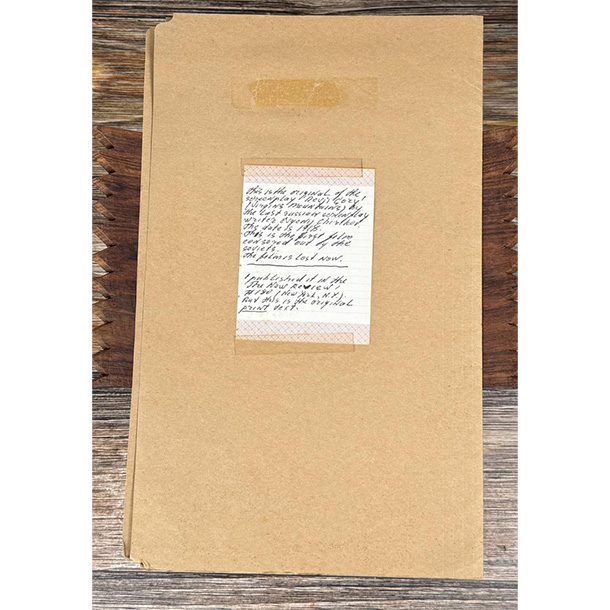 this is the original of the
screenplay "Devji Gory"
(Virgins Mountains) by
the last russian screenplay
writer Evgeny Chirikov.
The date is 1918.
This is the first film
censored out by the
soviets.
The film is lost now.
I published it in the
The New Review
#180 (New York, N.Y.).
But this is the original
print text.